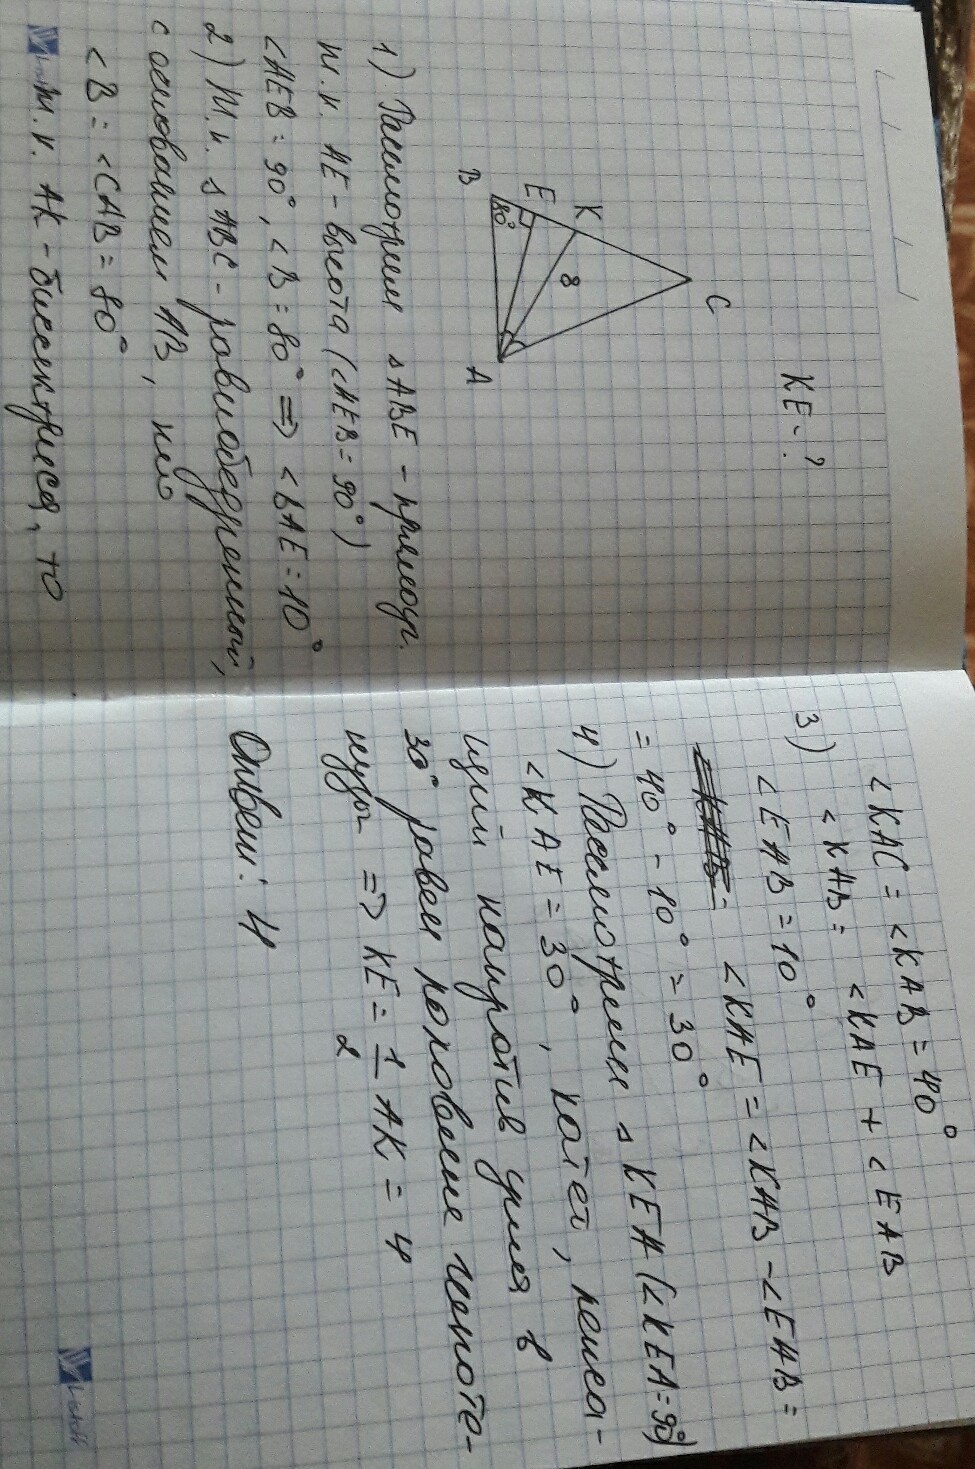 KE - ?
C
K
8
E
B
80°
A
1) Рассмотрим △ABE - прямоуг.
т.к. AE - высота (<AEB = 90°)
<AEB = 90°, <B = 80° => <BAE = 10°
2) Т.к. △ABC - равнобедренный,
с основанием AB, то
<B = <CAB = 80°
т.к. AK - биссектриса, то
<KAC = <KAB = 40°
3) <KAB = <KAE + <EAB
<EAB = 10°
<KAE = <KAB - <EAB =
= 40° - 10° = 30°
4) Рассмотрим △KEA (<KEA = 90°)
<KAE = 30°, катет, лежа-
щий напротив угла в
30° равен половине гипоте-
нузы => KE = 1/2 AK = 4
Ответ: 4